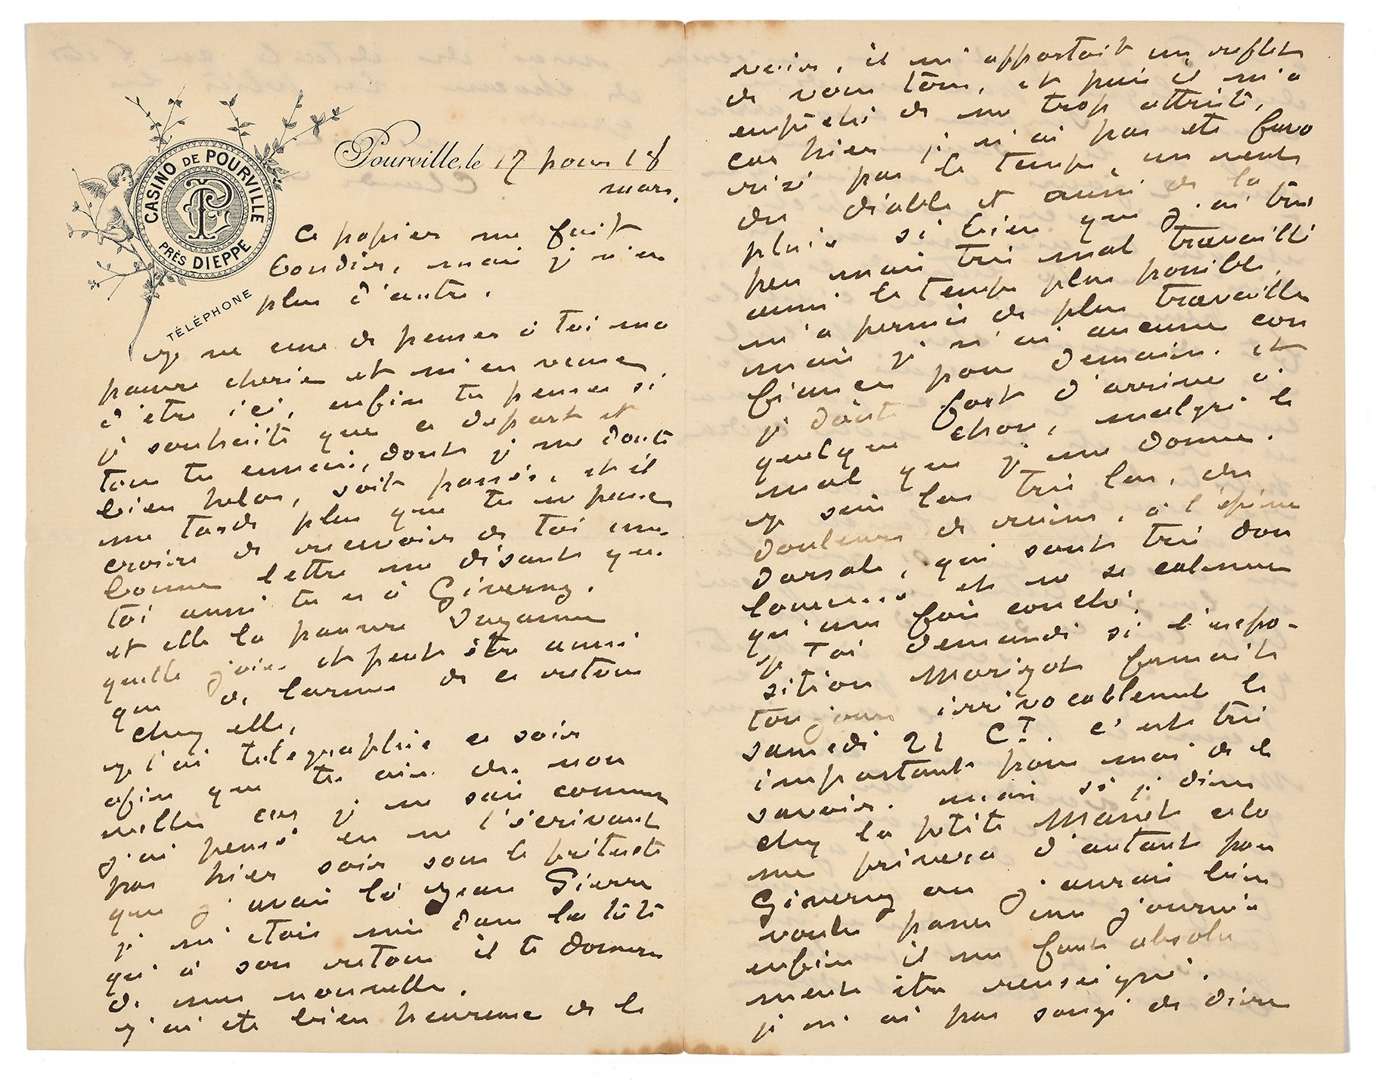 CASINO DE POURVILLE
PRÈS DIEPPE
TÉLÉPHONE
Pourville, le 17 pour 18
mars.
Ce papier me fait
bondir, mais je n'ai
plus d'autre.
Je ne cesse de penser à toi ma
pauvre cherie et m'en veux
d'être ici, enfin tu penses si
je souhaite que ce départ et
tous tes ennuis, dont je me doute
bien helas, soit passés, et il
me tarde plus que tu ne peux
croire de recevoir de toi une
bonne lettre me disant que
toi aussi tu es à Giverny.
et elle la pauvre Suzanne
quelle joie et peut être aussi
que de larmes de ce retour
chez elle.
Je t'ai télégraphié ce soir
afin que tu aies de mes nou
velles car je ne sais comme
j'ai pensé en ne t'écrivant
pas hier soir sous le prétexte
que j'avais là Jean Pierre
je m'étais mis dans la tête
qu'à son retour il te donnera
de mes nouvelles.
J'ai été bien heureux de le
voir, il m'apportait un reflet
de vous tous, et puis il m'a
empêché de me trop attrister,
car hier je n'ai pas été favo
risé par le temps, un vent
du diable et aussi de la
pluie si bien que j'ai très
peu mais très mal travaillé
aussi le temps plus possible,
m'a permis de plus travailler
mais je n'ai aucune con
fiance pour demain. et
je doute fort d'arriver à
quelque chose, malgré le
mal que je me donne.
Je suis las très las, des
douleurs de reins, à l'épine
dorsale, qui sont très dou
loureuses et ne se calment
qu'une fois couché.
Je t'ai demandé si l'expo-
sition Morizot fermait
toujours irrévocablement le
samedi 21 Ct. c'est très
important pour moi de le
savoir. mais si je dine
chez la petite Manet cela
me privera d'autant pour
Giverny où j'aurais bien
voulu passer une journée
enfin il me faut absolu
ment être renseigné.
je n'ai pas songé de dire